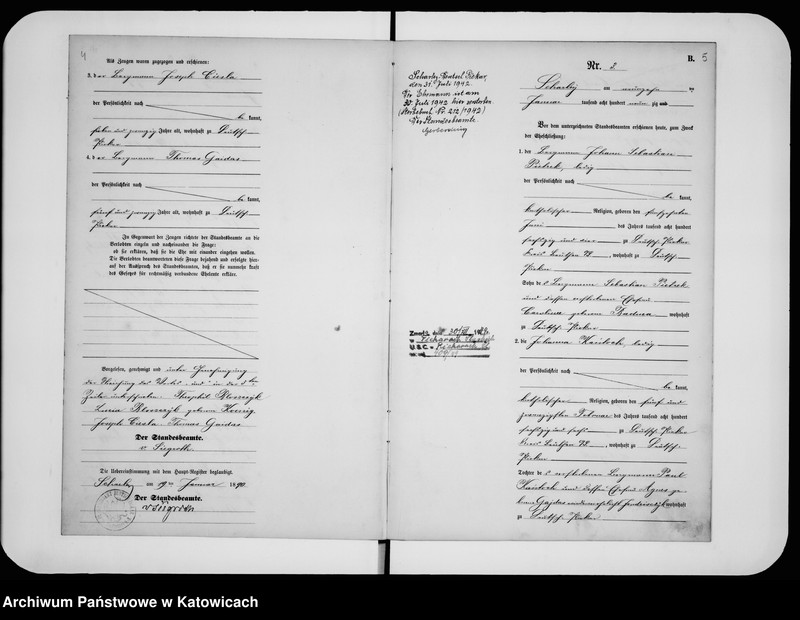 4
Als Zeugen waren zugezogen und erschienen:
3. der Bergmann Joseph Ciesla
der Persönlichkeit nach
be kannt,
sieben und zwanzig Jahre alt, wohnhaft zu Deutsch
Piekar
4. der Bergmann Thomas Gaidas
der Persönlichkeit nach
be kannt,
fünf und zwanzig Jahre alt, wohnhaft zu Deutsch
Piekar
In Gegenwart der Zeugen richtete der Standesbeamte an die
Verlobten einzeln und nacheinander die Frage:
ob sie erklären, daß sie die Ehe mit einander eingehen wollen.
Die Verlobten beantworteten diese Frage bejahend und erfolgte hier-
auf der Ausspruch des Standesbeamten, daß er sie nunmehr kraft
des Gesetzes für rechtmäßig verbundene Eheleute erkläre.
Vorgelesen, genehmigt und unter Genehmigung
der Streichung des
Zeile unterschrieben.
geborene
Joseph Ciesla. Thomas Gaidas
Der Standesbeamte.
v Siegroth
Die Uebereinstimmung mit dem Haupt-Register beglaubigt.
Scharley am 19ten Januar 1890
Der Standesbeamte.
v Siegroth
Scharley, Deutsch Piekar,
den 31. Juli 1942.
Der Ehemann ist am
30. Juli 1942 hier verstorben
(Sterbebuch Nr. 212/1942)
Der Standesbeamte
B.
5
Nr. 2
Scharley am neunzehnten
Januar tausend acht hundert neunzig und
Vor dem unterzeichneten Standesbeamten erschienen heute, zum Zweck
der Eheschließung:
1. der Bergmann Johann Sebastian
Pietrek, ledig
der Persönlichkeit nach
be kannt,
katholischer Religion, geboren den
Juni des Jahres tausend acht hundert
sechszig und drei zu Deutsch Piekar
Kreis Beuthen, wohnhaft zu Deutsch
Piekar
Sohn des Bergmanns Sebastian Pietrek
und dessen verstorbenen Ehefrau
Carolina geborene wohnhaft
zu Deutsch Piekar
2. die Johanna Kaitoch, ledig
der Persönlichkeit nach
be kannt,
katholischer Religion, geboren den fünf und
zwanzigsten Februar des Jahres tausend acht hundert
sechszig und sechs zu Deutsch Piekar
Kreis Beuthen, wohnhaft zu Deutsch
Piekar
Tochter des verstorbenen Bergmanns Paul
Kaitoch und dessen Ehefrau Agnes ge
borene Gajdas wohnhaft
zu Deutsch Piekar
Archiwum Państwowe w Katowicach